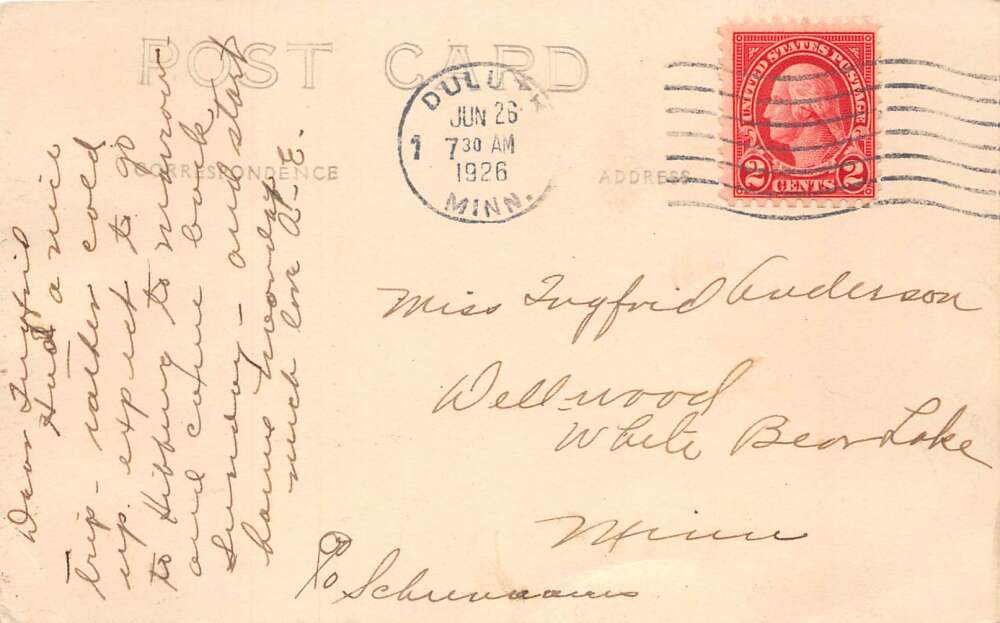 POST CARD
CORRESPONDENCE
ADDRESS
DULUTH
JUN 26
1 7 30 AM
1926
MINN.
UNITED STATES POSTAGE
2 CENTS 2
Dear Ingfrid
Had a nice
trip - rather cold
up. expect to go
to Hibbing to-morrow -
and come back
Sunday - and start
home Monday
much love A-E.
Miss Ingfrid Anderson
Dellwood
White Bear Lake
Minn
℅ Schurmanns